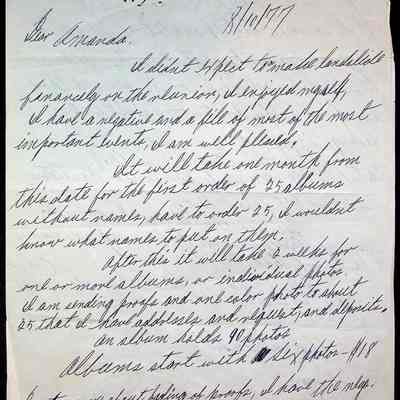 8/10/77
Dear Amanda.
I didnt expect to make landslide
financely on the reunion, I enjoyed myself,
I have a negative and a file of most of the most
important events, I am well pleased.
It will take one month from
this date for the first order of 25 albums
without names, have to order 25, I wouldnt
know what names to put on them.
After this it will take 2 weeks for
one or more albums, or individual photos
I am sending proofs and one color photo to about
25 that I have addresses and request, and deposits.
an album holds 90 photos
Albums start with six photos - $18
about of proofs, I have the nega.